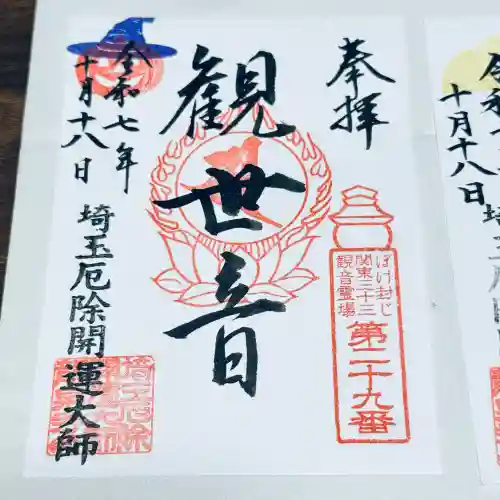 奉拝
ぼけ封じ
関東三十三
観音霊場
第二十九番
観世音
令和七年
十月十八日
埼玉厄除開運大師
令和七
十月十八日